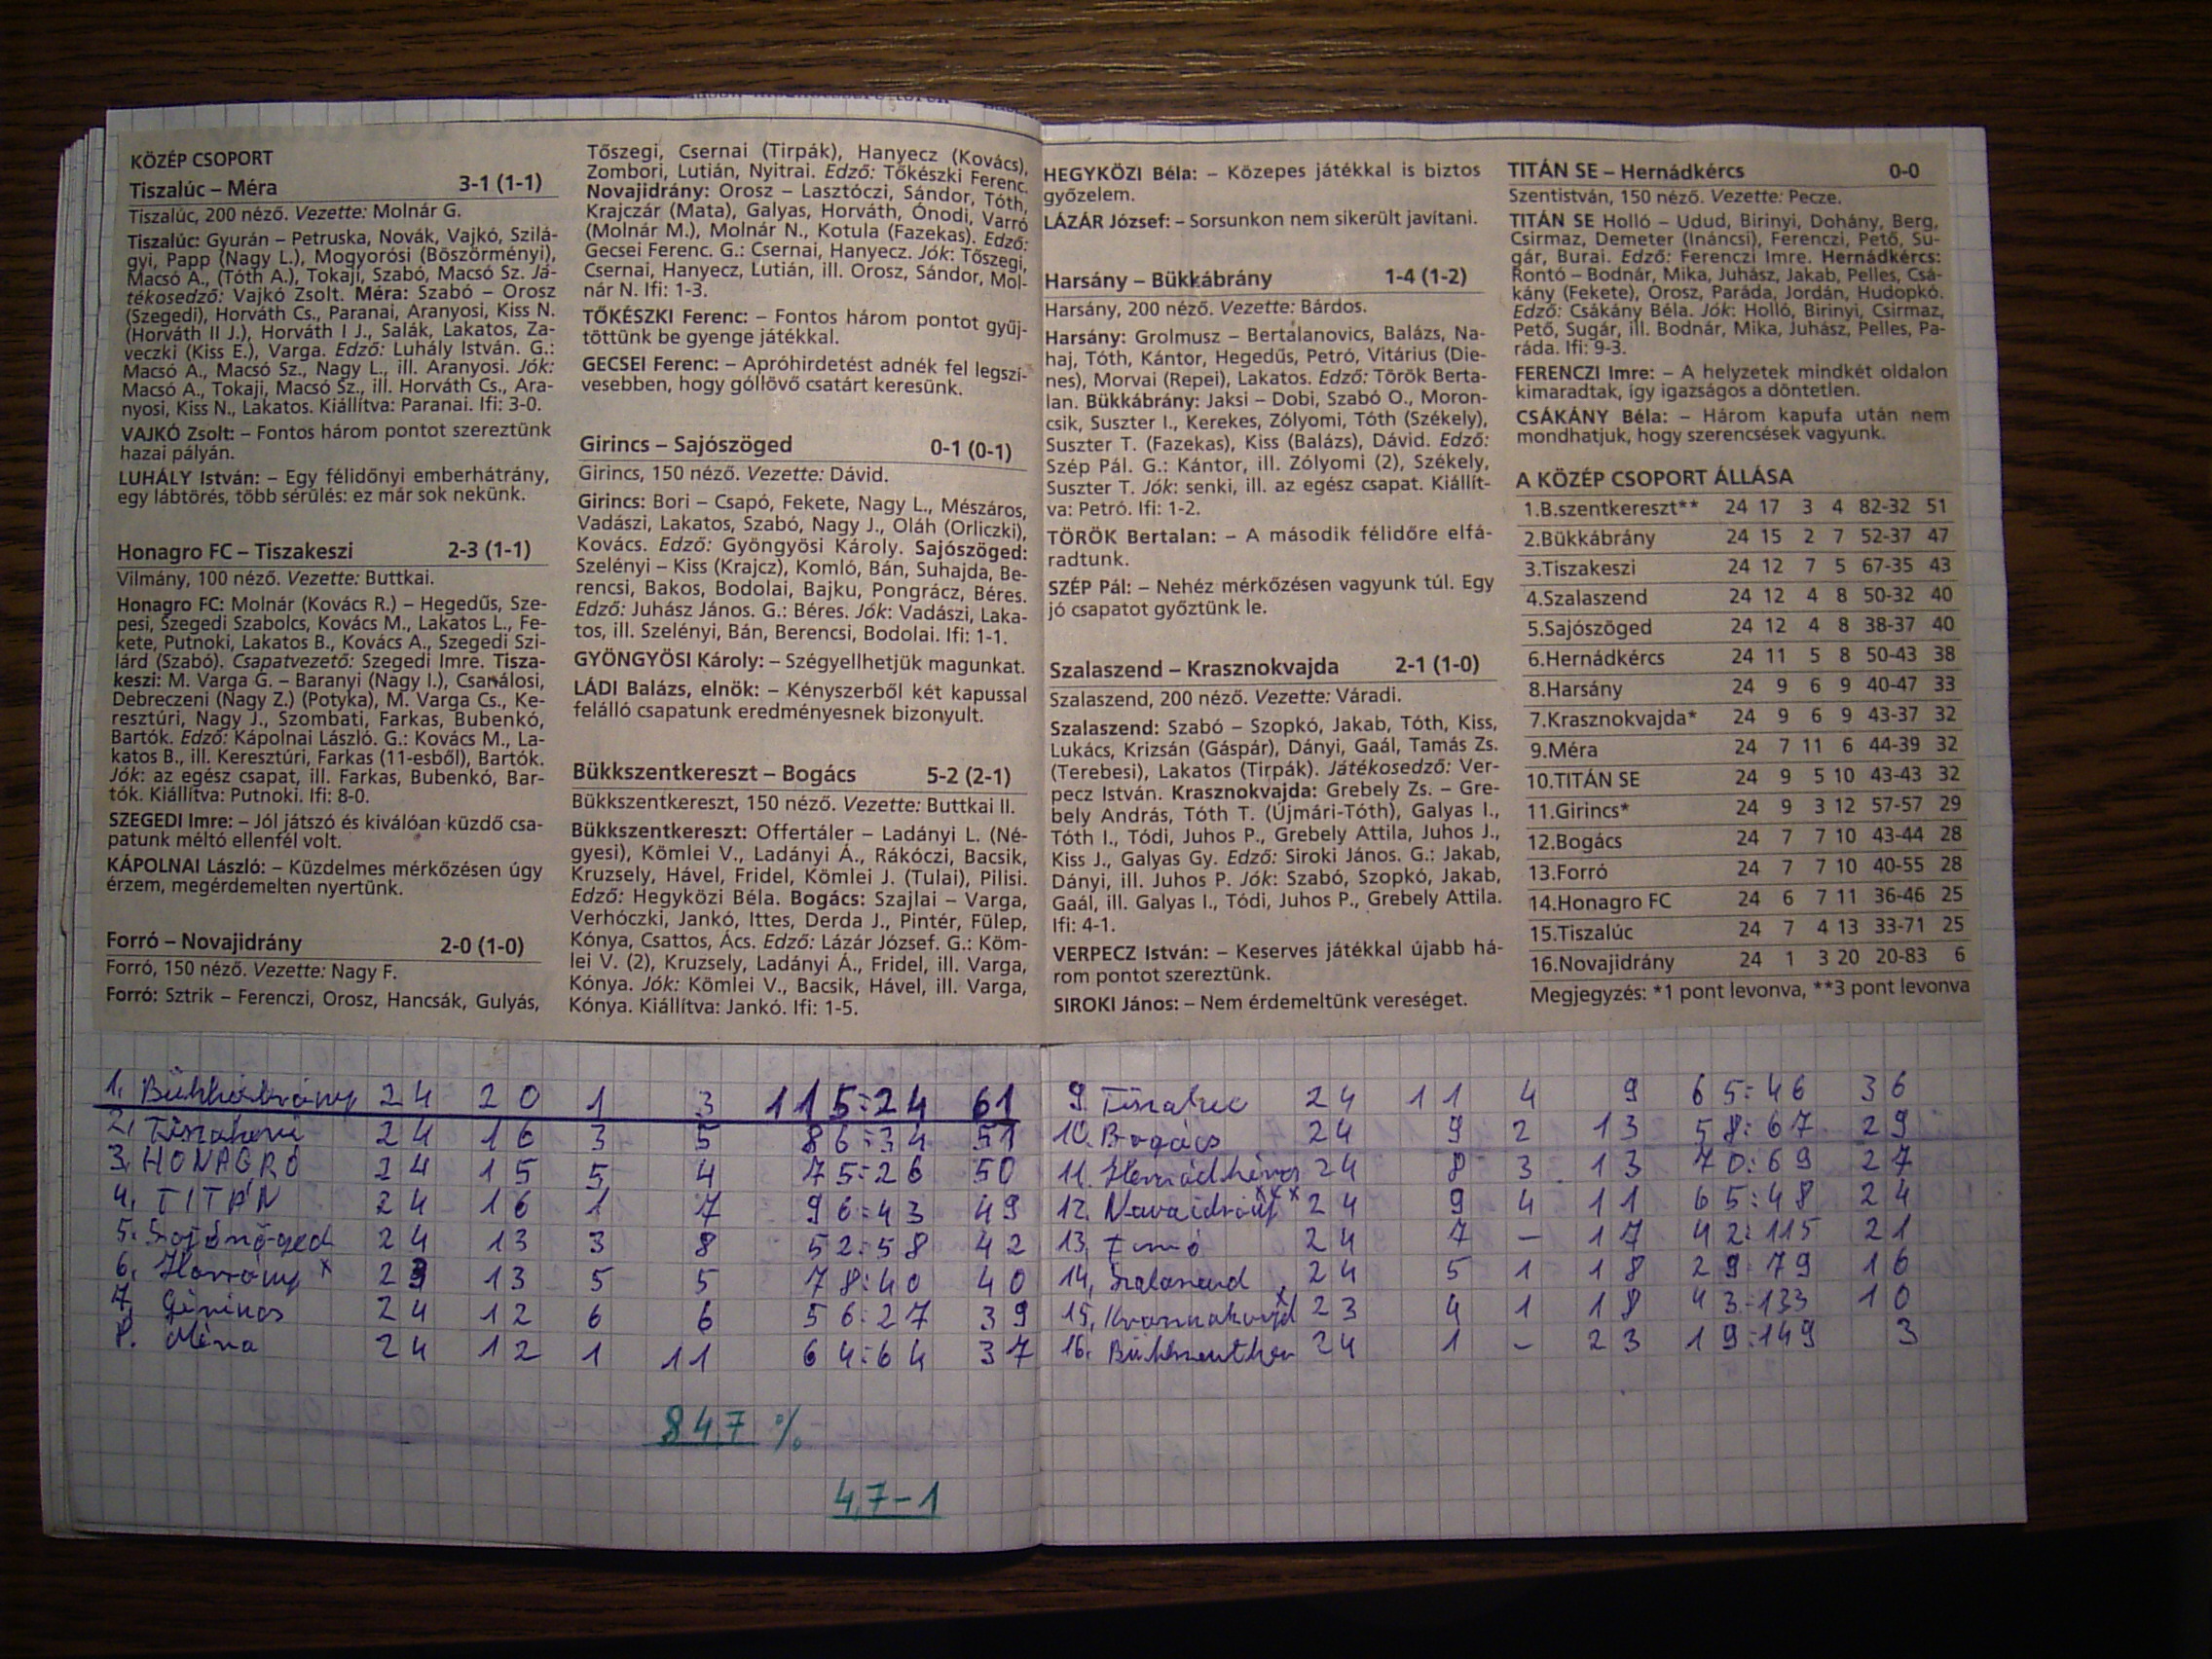 KÖZÉP CSOPORT
Tiszalúc – Méra 3-1 (1-1)
Tiszalúc, 200 néző. Vezette: Molnár G.
Tiszalúc: Gyurán – Petruska, Novák, Vajkó, Szilá-
gyi, Papp (Nagy L.), Mogyorósi (Böszörményi),
Macsó A., (Tóth A.), Tokaji, Szabó, Macsó Sz. Já-
tékosedző: Vajkó Zsolt. Méra: Szabó – Orosz
(Szegedi), Horváth Cs., Paranai, Aranyosi, Kiss N.
(Horváth II J.), Horváth I J., Salák, Lakatos, Za-
veczki (Kiss E.), Varga. Edző: Luhály István. G.:
Macsó A., Macsó Sz., Nagy L., ill. Aranyosi. Jók:
Macsó A., Tokaji, Macsó Sz., ill. Horváth Cs., Ara-
nyosi, Kiss N., Lakatos. Kiállítva: Paranai. Ifi: 3-0.
VAJKÓ Zsolt: – Fontos három pontot szereztünk
hazai pályán.
LUHÁLY István: – Egy félidőnyi emberhátrány,
egy lábtörés, több sérülés: ez már sok nekünk.
Honagro FC – Tiszakeszi 2-3 (1-1)
Vilmány, 100 néző. Vezette: Buttkai.
Honagro FC: Molnár (Kovács R.) – Hegedűs, Sze-
pesi, Szegedi Szabolcs, Kovács M., Lakatos L., Fe-
kete, Putnoki, Lakatos B., Kovács A., Szegedi Szi-
lárd (Szabó). Csapatvezető: Szegedi Imre. Tisza-
keszi: M. Varga G. – Baranyi (Nagy I.), Csanálosi,
Debreczeni (Nagy Z.) (Potyka), M. Varga Cs., Ke-
resztúri, Nagy J., Szombati, Farkas, Bubenkó,
Bartók. Edző: Kápolnai László. G.: Kovács M., La-
katos B., ill. Keresztúri, Farkas (11-esből), Bartók.
Jók: az egész csapat, ill. Farkas, Bubenkó, Bar-
tók. Kiállítva: Putnoki. Ifi: 8-0.
SZEGEDI Imre: – Jól játszó és kiválóan küzdő csa-
patunk méltó ellenfél volt.
KÁPOLNAI László: – Küzdelmes mérkőzésen úgy
érzem, megérdemelten nyertünk.
Forró – Novajidrány 2-0 (1-0)
Forró, 150 néző. Vezette: Nagy F.
Forró: Sztrik – Ferenczi, Orosz, Hancsák, Gulyás,
Tőszegi, Csernai (Tirpák), Hanyecz (Kovács),
Zombori, Lutián, Nyitrai. Edző: Tőkészki Ferenc.
Novajidrány: Orosz – Lasztóczi, Sándor, Tóth,
Krajczár (Mata), Galyas, Horváth, Ónodi, Varró
(Molnár M.), Molnár N., Kotula (Fazekas). Edző:
Gecsei Ferenc. G.: Csernai, Hanyecz. Jók: Tőszegi,
Csernai, Hanyecz, Lutián, ill. Orosz, Sándor, Mol-
nár N. Ifi: 1-3.
TŐKÉSZKI Ferenc: – Fontos három pontot gyűj-
töttünk be gyenge játékkal.
GECSEI Ferenc: – Apróhirdetést adnék fel legszí-
vesebben, hogy góllövő csatárt keresünk.
Girincs – Sajószöged 0-1 (0-1)
Girincs, 150 néző. Vezette: Dávid.
Girincs: Bori – Csapó, Fekete, Nagy L., Mészáros,
Vadászi, Lakatos, Szabó, Nagy J., Oláh (Orliczki),
Kovács. Edző: Gyöngyösi Károly. Sajószöged:
Szelényi – Kiss (Krajcz), Komló, Bán, Suhajda, Be-
rencsi, Bakos, Bodolai, Bajku, Pongrácz, Béres.
Edző: Juhász János. G.: Béres. Jók: Vadászi, Laka-
tos, ill. Szelényi, Bán, Berencsi, Bodolai. Ifi: 1-1.
GYÖNGYÖSI Károly: – Szégyellhetjük magunkat.
LÁDI Balázs, elnök: – Kényszerből két kapussal
felálló csapatunk eredményesnek bizonyult.
Bükkszentkereszt – Bogács 5-2 (2-1)
Bükkszentkereszt, 150 néző. Vezette: Buttkai II.
Bükkszentkereszt: Offertáler – Ladányi L. (Né-
gyesi), Kömlei V., Ladányi Á., Rákóczi, Bacsik,
Kruzsely, Hável, Fridel, Kömlei J. (Tulai), Pilisi.
Edző: Hegyközi Béla. Bogács: Szajlai – Varga,
Verhóczki, Jankó, Ittes, Derda J., Pintér, Fülep,
Kónya, Csattos, Ács. Edző: Lázár József. G.: Köm-
lei V. (2), Kruzsely, Ladányi Á., Fridel, ill. Varga,
Kónya. Jók: Kömlei V., Bacsik, Hável, ill. Varga,
Kónya. Kiállítva: Jankó. Ifi: 1-5.
HEGYKÖZI Béla: – Közepes játékkal is biztos
győzelem.
LÁZÁR József: – Sorsunkon nem sikerült javítani.
Harsány – Bükkábrány 1-4 (1-2)
Harsány, 200 néző. Vezette: Bárdos.
Harsány: Grolmusz – Bertalanovics, Balázs, Na-
haj, Tóth, Kántor, Hegedűs, Petró, Vitárius (Die-
nes), Morvai (Repei), Lakatos. Edző: Török Berta-
lan. Bükkábrány: Jaksi – Dobi, Szabó O., Moron-
csik, Suszter I., Kerekes, Zólyomi, Tóth (Székely),
Suszter T. (Fazekas), Kiss (Balázs), Dávid. Edző:
Szép Pál. G.: Kántor, ill. Zólyomi (2), Székely,
Suszter T. Jók: senki, ill. az egész csapat. Kiállít-
va: Petró. Ifi: 1-2.
TÖRÖK Bertalan: – A második félidőre elfá-
radtunk.
SZÉP Pál: – Nehéz mérkőzésen vagyunk túl. Egy
jó csapatot győztünk le.
Szalaszend – Krasznokvajda 2-1 (1-0)
Szalaszend, 200 néző. Vezette: Váradi.
Szalaszend: Szabó – Szopkó, Jakab, Tóth, Kiss,
Lukács, Krizsán (Gáspár), Dányi, Gaál, Tamás Zs.
(Terebesi), Lakatos (Tirpák). Játékosedző: Ver-
pecz István. Krasznokvajda: Grebely Zs. – Gre-
bely András, Tóth T. (Újmári-Tóth), Galyas I.,
Tóth I., Tódi, Juhos P., Grebely Attila, Juhos J.,
Kiss J., Galyas Gy. Edző: Siroki János. G.: Jakab,
Dányi, ill. Juhos P. Jók: Szabó, Szopkó, Jakab,
Gaál, ill. Galyas I., Tódi, Juhos P., Grebely Attila.
Ifi: 4-1.
VERPECZ István: – Keserves játékkal újabb há-
rom pontot szereztünk.
SIROKI János: – Nem érdemeltünk vereséget.
TITÁN SE – Hernádkércs 0-0
Szentistván, 150 néző. Vezette: Pecze.
TITÁN SE Holló – Udud, Birinyi, Dohány, Berg,
Csirmaz, Demeter (Ináncsi), Ferenczi, Pető, Su-
gár, Burai. Edző: Ferenczi Imre. Hernádkércs:
Rontó – Bodnár, Mika, Juhász, Jakab, Pelles, Csá-
kány (Fekete), Orosz, Paráda, Jordán, Hudopkó.
Edző: Csákány Béla. Jók: Holló, Birinyi, Csirmaz,
Pető, Sugár, ill. Bodnár, Mika, Juhász, Pelles, Pa-
ráda. Ifi: 9-3.
FERENCZI Imre: – A helyzetek mindkét oldalon
kimaradtak, így igazságos a döntetlen.
CSÁKÁNY Béla: – Három kapufa után nem
mondhatjuk, hogy szerencsések vagyunk.
A KÖZÉP CSOPORT ÁLLÁSA
1.B.szentkereszt** 24 17 3 4 82-32 51
2.Bükkábrány 24 15 2 7 52-37 47
3.Tiszakeszi 24 12 7 5 67-35 43
4.Szalaszend 24 12 4 8 50-32 40
5.Sajószöged 24 12 4 8 38-37 40
6.Hernádkércs 24 11 5 8 50-43 38
8.Harsány 24 9 6 9 40-47 33
7.Krasznokvajda* 24 9 6 9 43-37 32
9.Méra 24 7 11 6 44-39 32
10.TITÁN SE 24 9 5 10 43-43 32
11.Girincs* 24 9 3 12 57-57 29
12.Bogács 24 7 7 10 43-44 28
13.Forró 24 7 7 10 40-55 28
14.Honagro FC 24 6 7 11 36-46 25
15.Tiszalúc 24 7 4 13 33-71 25
16.Novajidrány 24 1 3 20 20-83 6
Megjegyzés: *1 pont levonva, **3 pont levonva
1. Bükkábrány 24 20 1 3 115:24 61
2. Tiszakeszi 24 16 3 5 86:34 51
3. HONAGRÓ 24 15 5 4 75:26 50
4. TITÁN 24 16 1 7 96:43 49
5. Sajószöged 24 13 3 8 52:58 42
6. Harsány x 23 13 5 5 78:40 40
7. Girincs 24 12 6 6 56:27 39
8. Méra 24 12 1 11 64:64 37
84,7 %
4,7-1
9. Tiszaluc 24 11 4 9 65:46 36
10. Bogács 24 9 2 13 58:67 29
11. Hernádkércs 24 8 3 13 70:69 27
12. Novaidrány xxx 24 9 4 11 65:48 24
13. Forró 24 7 – 17 42:115 21
14. Szalaszend 24 5 1 18 29:79 16
15. Krasznokvajd x 23 4 1 18 43:133 10
16. Bükkszentker 24 1 – 23 19:149 3